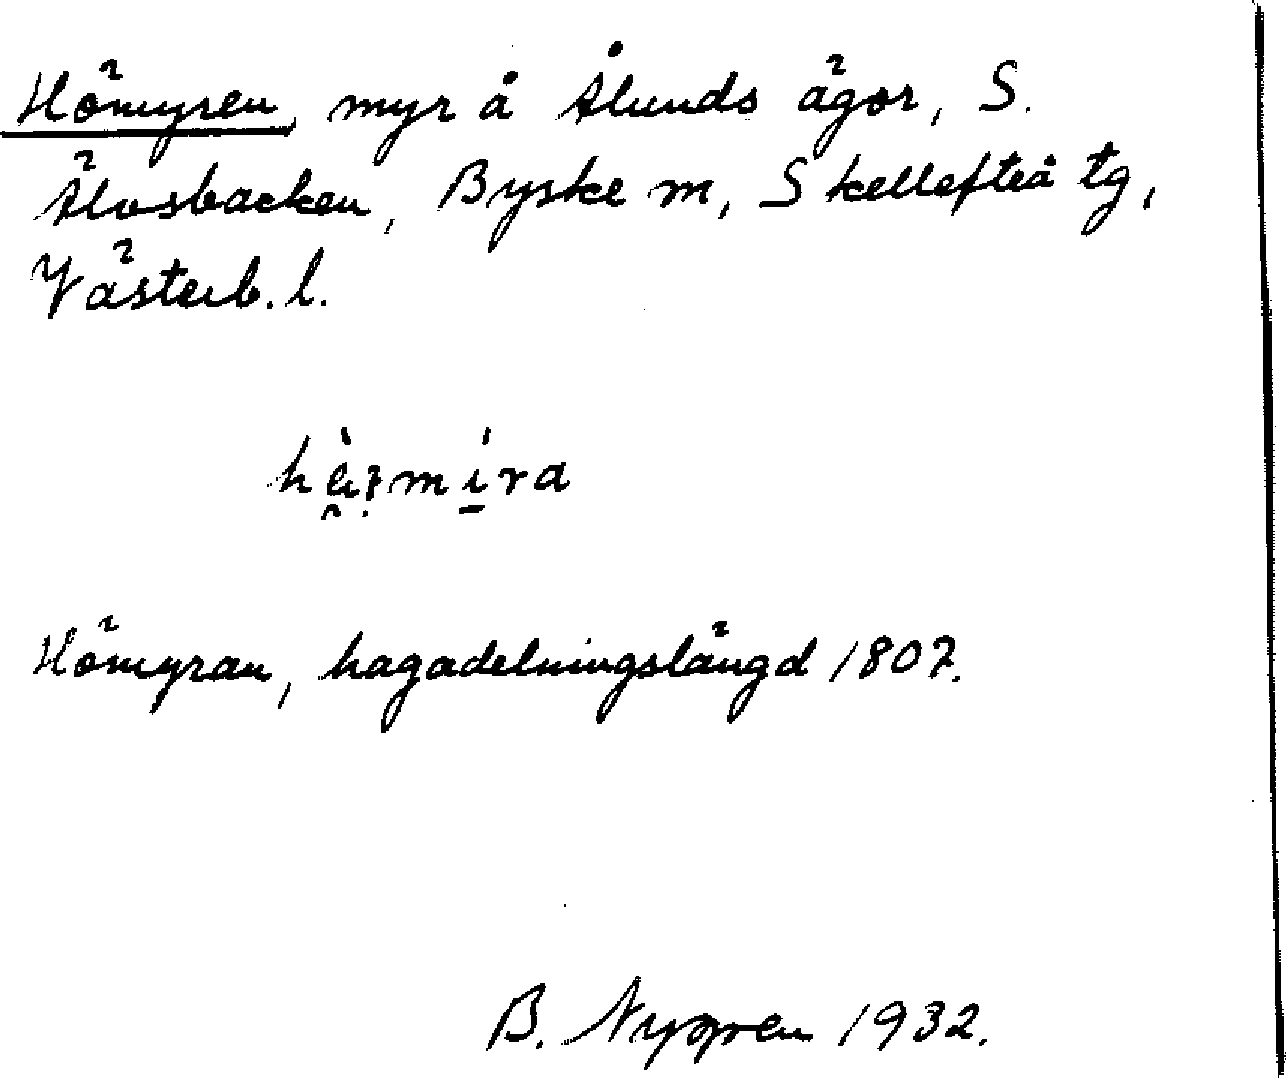 Hömyren, myr å Ålunds ägor, S.
Älvsbacken, Byske sn, Skellefteå tg,
Västerb. l.
Hömyran, hagadelningslängd 1807.
B. Nygren 1932.